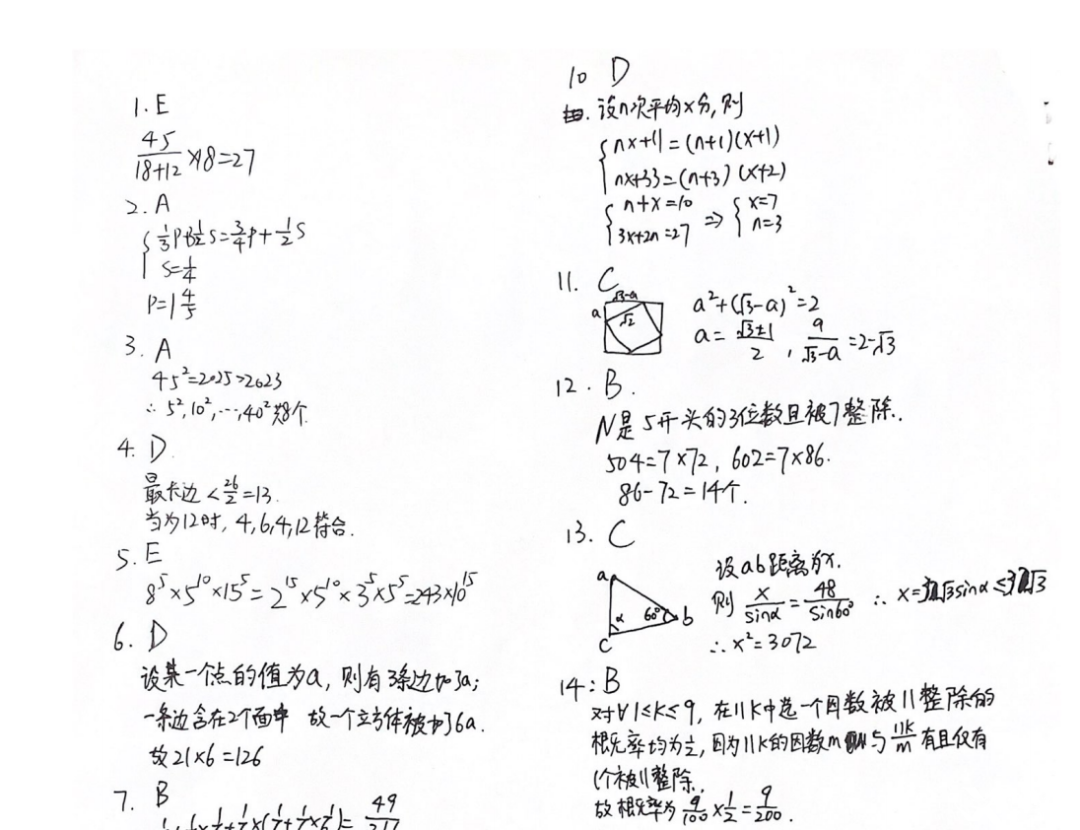 1. E
45/(18+12) ×18=27
2. A
S=1/4
P=1 4/5
3. A
45²=2025>2023
∴ 5²,10²,…,40²共8个.
4. D
最长边 < 26/2 =13.
当为12时, 4,6,4,12符合.
5. E
8⁵×5¹⁰×15⁵=2¹⁵×5¹⁰×3⁵×5⁵=243×10¹⁵
6. D
设某一个点的值为a, 则有3条边加了a;
一条边含在2个面中 故一个立方体被加了6a.
故21×6=126
7. B
10 D
设n次平均x分, 则
nx+11=(n+1)(x+1)
nx+33=(n+3)(x+2)
n+x=10
3x+2n=27 ⇒ x=7
n=3
11. C
√3-a
a √2
a²+(√3-a)²=2
a=(√3±1)/2 , a/(√3-a) =2-√3
12. B.
N是5开头的3位数且被7整除.
504=7×72, 602=7×86.
86-72=14个.
13. C
设ab距离为x.
则 x/sinα = 48/sin60°
a α 60° b c
∴ x²=3072
14: B
对∀1≤K≤9, 在11K中选一个因数被11整除的
概率均为1/2, 因为11K的因数m 与 11K/m 有且仅有
1个被11整除.
故概率为 9/100 × 1/2 = 9/200 .